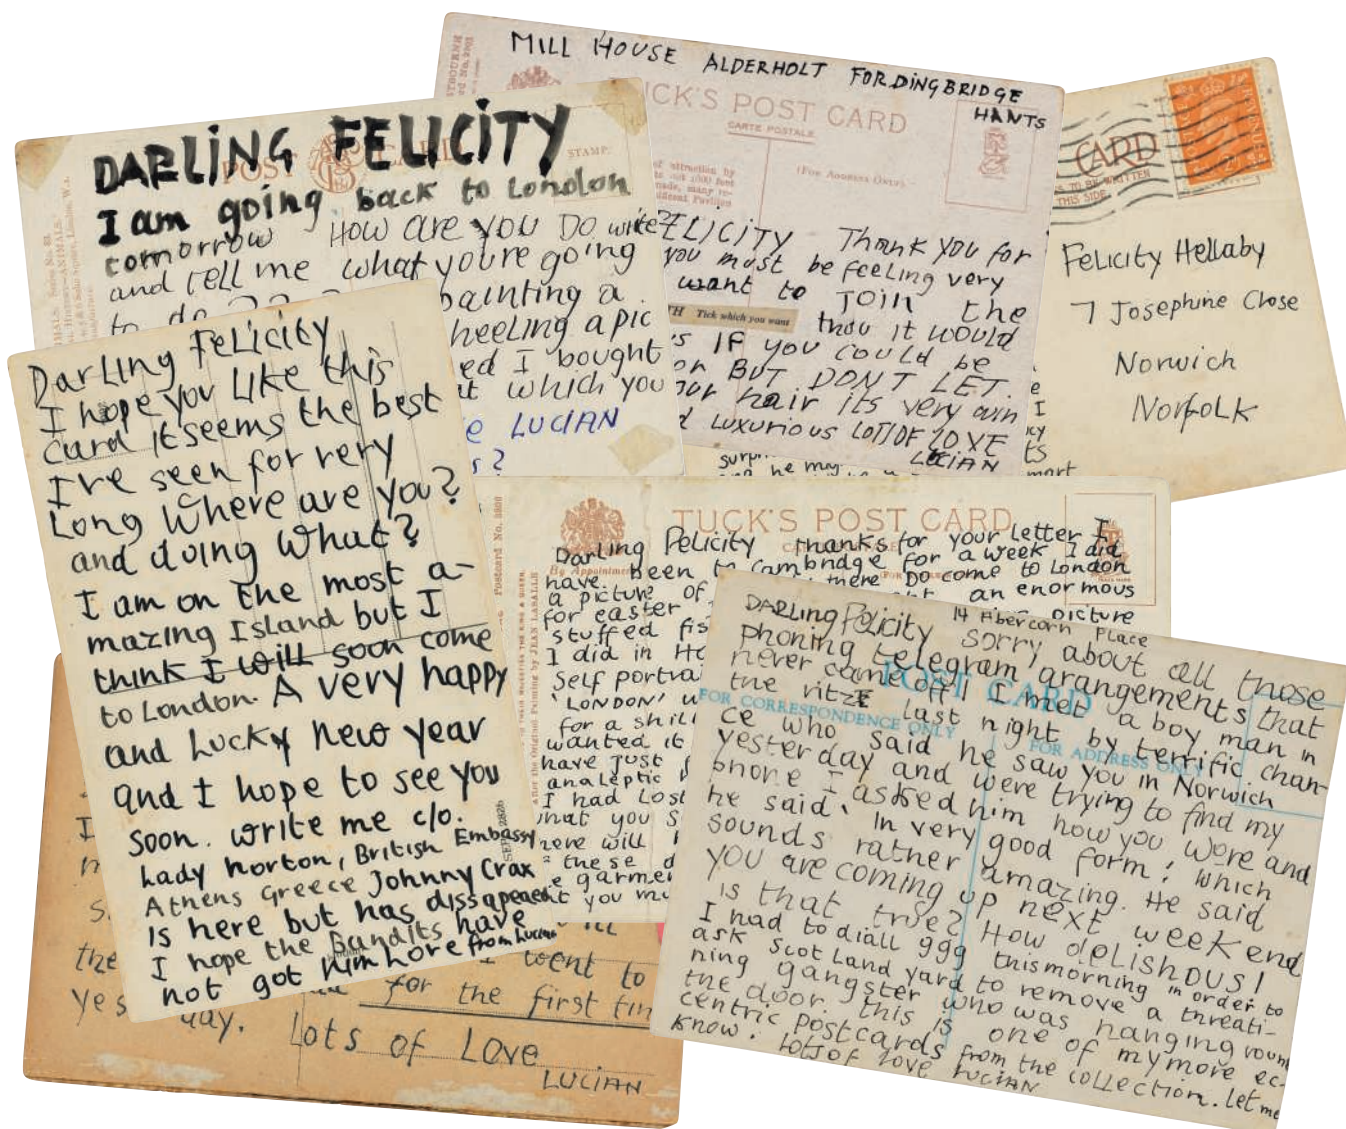 MILL HOUSE ALDERHOLT FORDINGBRIDGE
HANTS
TUCK'S POST CARD
CARTE POSTALE
(FOR ADDRESS ONLY)
FELICITY Thank you for
you must be feeling very
want to join the
TH Tick which you want
thou it would
s IF you could be
or BUT DONT LET
our hair its very own
d luxurious LOTS OF LOVE
LUCIAN
DARLING FELICITY
POST CARD
STAMP.
I am going back to London
tomorrow How are you Do write
and tell me what youre going
to do ???? painting a
heeling a pic
ed I bought
at which you
e LUCIAN
s?
CARD
TO BE WRITTEN
THIS SIDE
Felicity Hellaby
7 Josephine Close
Norwich
Norfolk
Darling Felicity
I hope you Like this
card it seems the best
I've seen for very
Long Where are you?
and doing What?
I am on the most a-
mazing Island but I
think I will soon come
to London. A very happy
and Lucky new year
and I hope to see you
soon. write me c/o.
Lady Norton, British Embassy
Athens Greece Johnny Crax
is here but has dissapeared
I hope the Bandits have
not got him Love from Lucian
TUCK'S POST CARD
By Appointment
Postcard No. 3800
Darling Felicity thanks for your letter I
have been to Cambridge for a week I did
a picture of there Do come to London
for easter an enormous
stuffed fis picture
I did in H
self portra
'LONDON' w
for a shill
wanted it
have just
analeptic
I had Lost
what you s
here will
these d
e garme
t you mu
14 Abercorn Place
DARLing Felicity sorry about all those
phoning telegram arangements that
never came off. I met a boy man in
the ritz last night by terrific chan-
POST CARD
FOR CORRESPONDENCE ONLY
FOR ADDRESS ONLY
ce who said he saw you in Norwich
yesterday and were trying to find my
phone I asked him how you were and
he said, in very good form; which
sounds rather amazing. He said
you are coming up next weekend
is that true? How delishous!
I had to diall 999 this morning in order to
ask Scotland yard to remove a threati-
ning gangster who was hanging round
the door. this is one of my more ec-
centric postcards from the collection. Let me
know. Lots of Love LUCIAN
went to
the for the first tim
yes day.
Lots of Love
LUCIAN